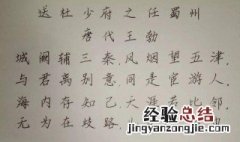 送杜少府之任蜀州
唐代王勃
城阙辅三秦,风烟望五津,
与君离别意,同是宦游人,
海内存知己,天涯若比邻,
无为在歧路,
经验总结
jingyanzongjie.com